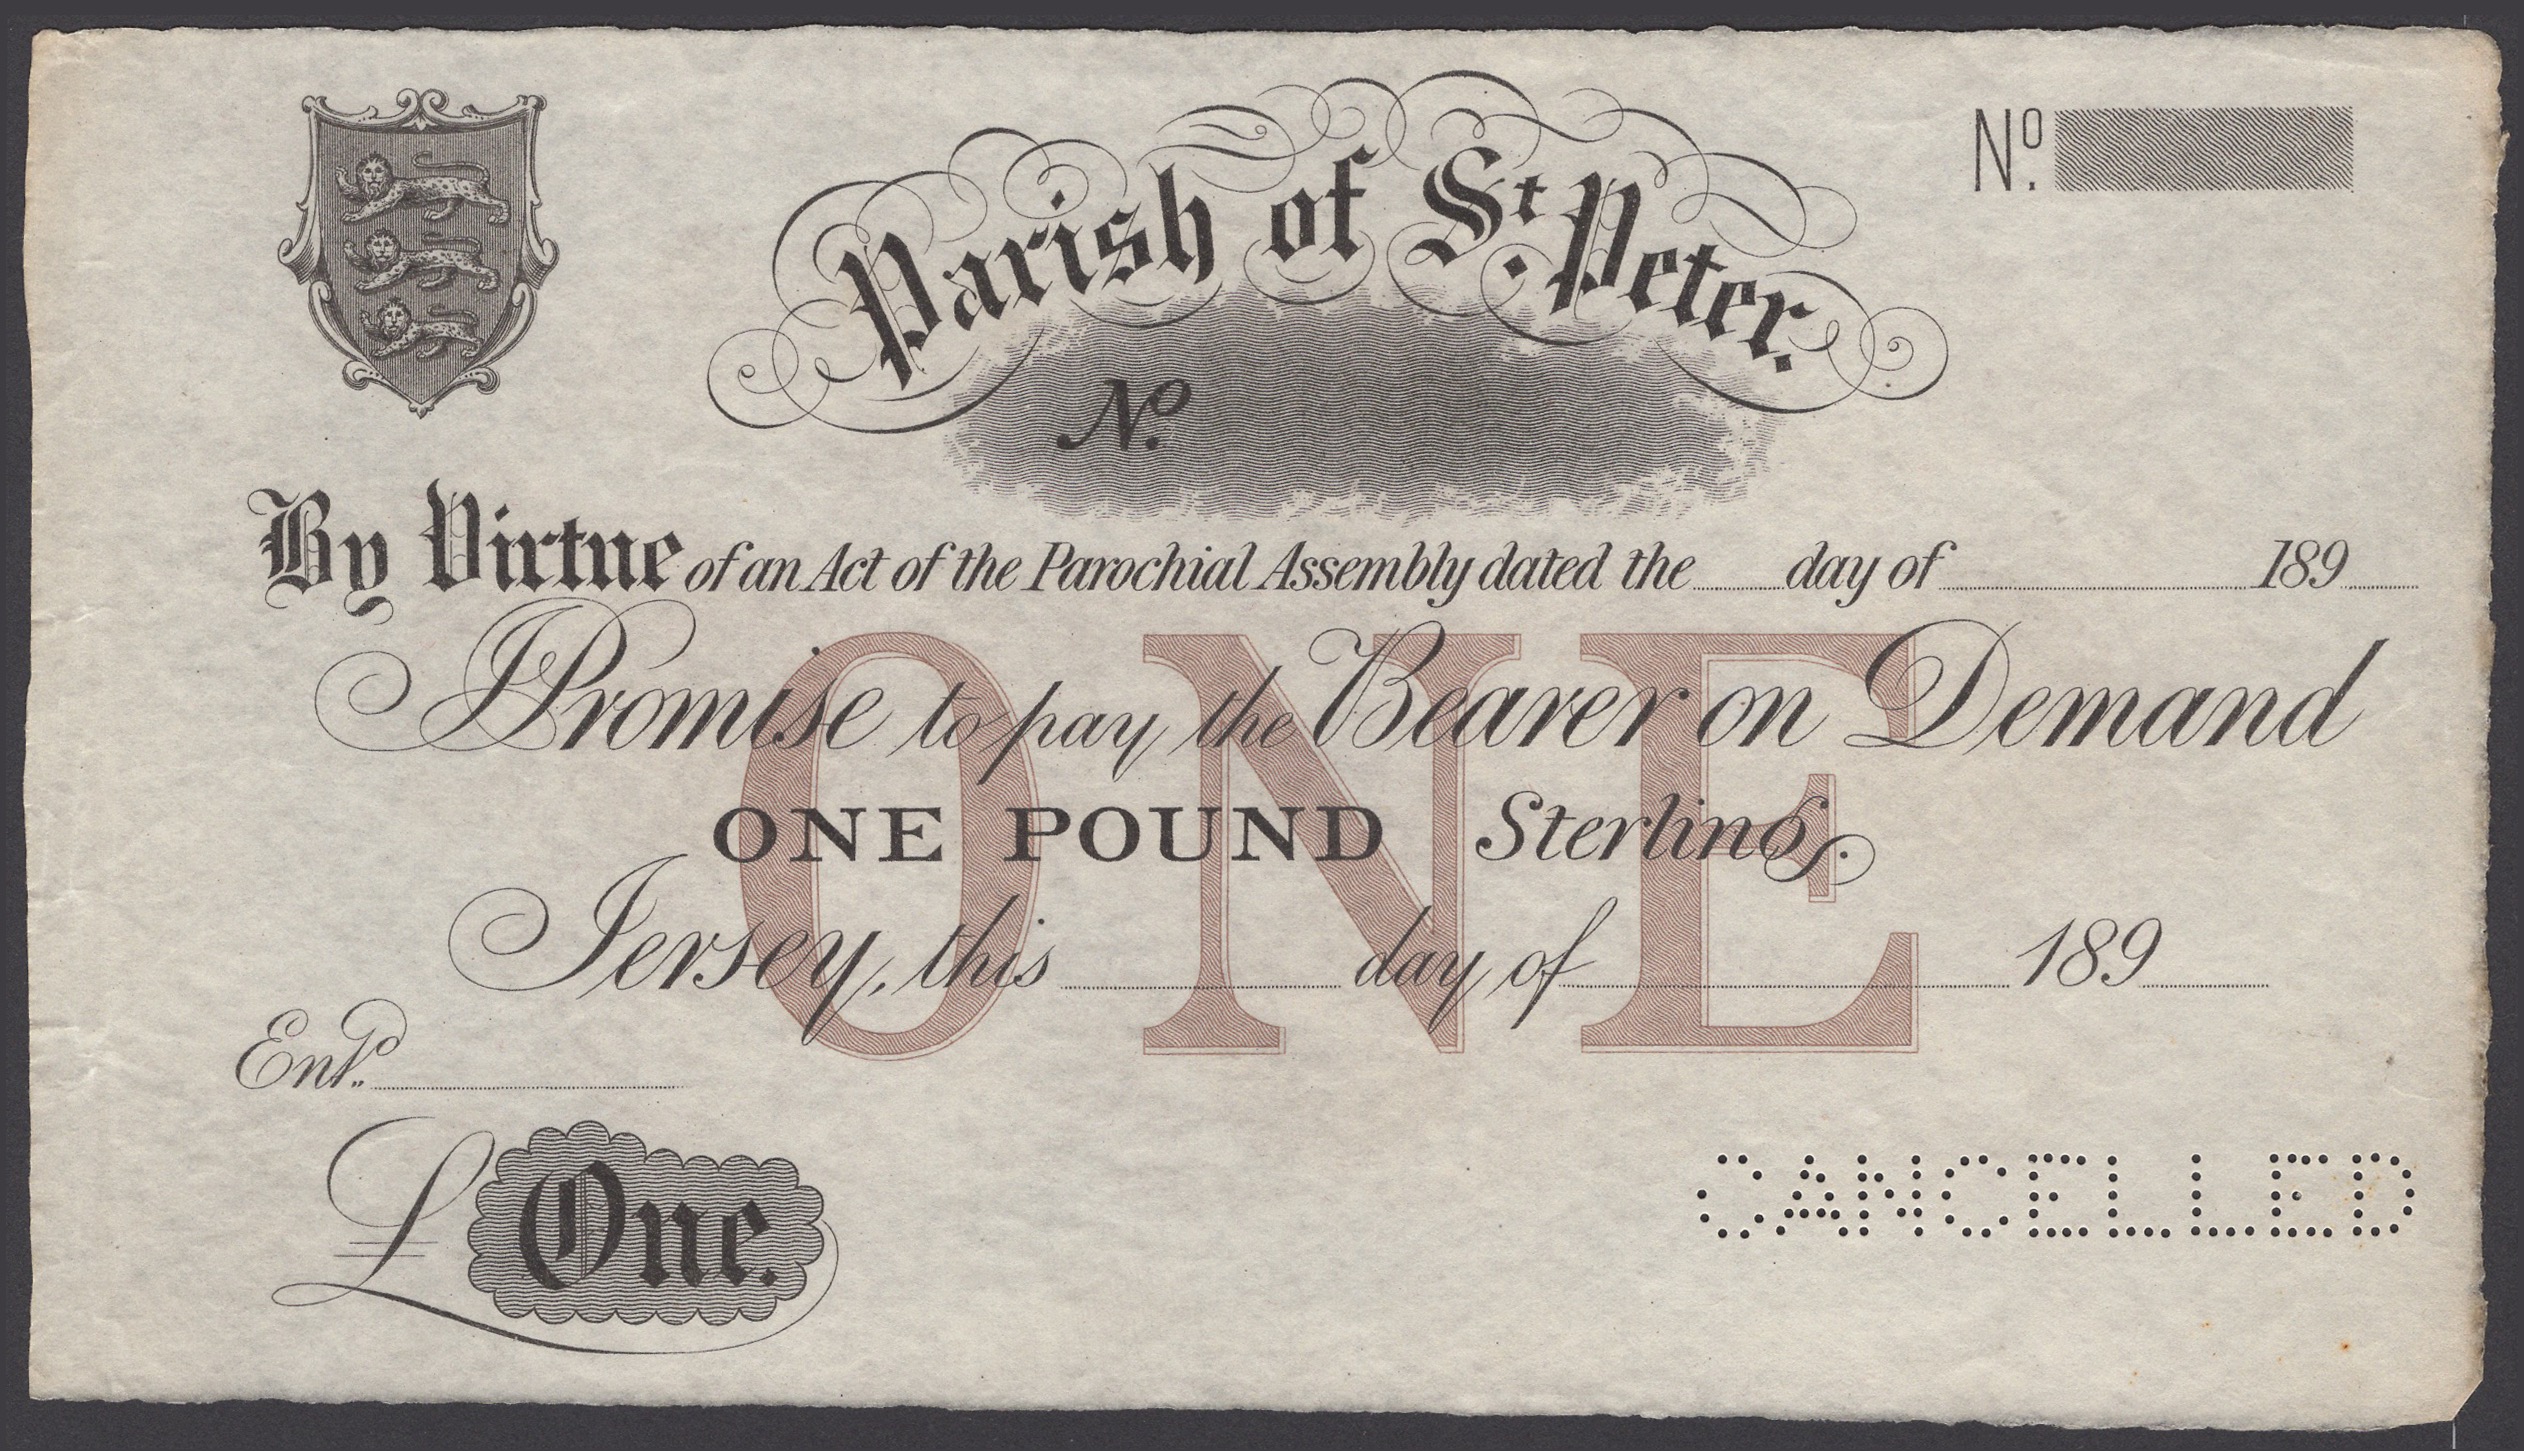 Parish of St. Peter.
No.
No.
By Virtue of an Act of the Parochial Assembly dated the day of 189
I Promise to pay the Bearer on Demand
ONE
ONE POUND Sterling.
Jersey, this day of 189
Entd.
£ One.
CANCELLED